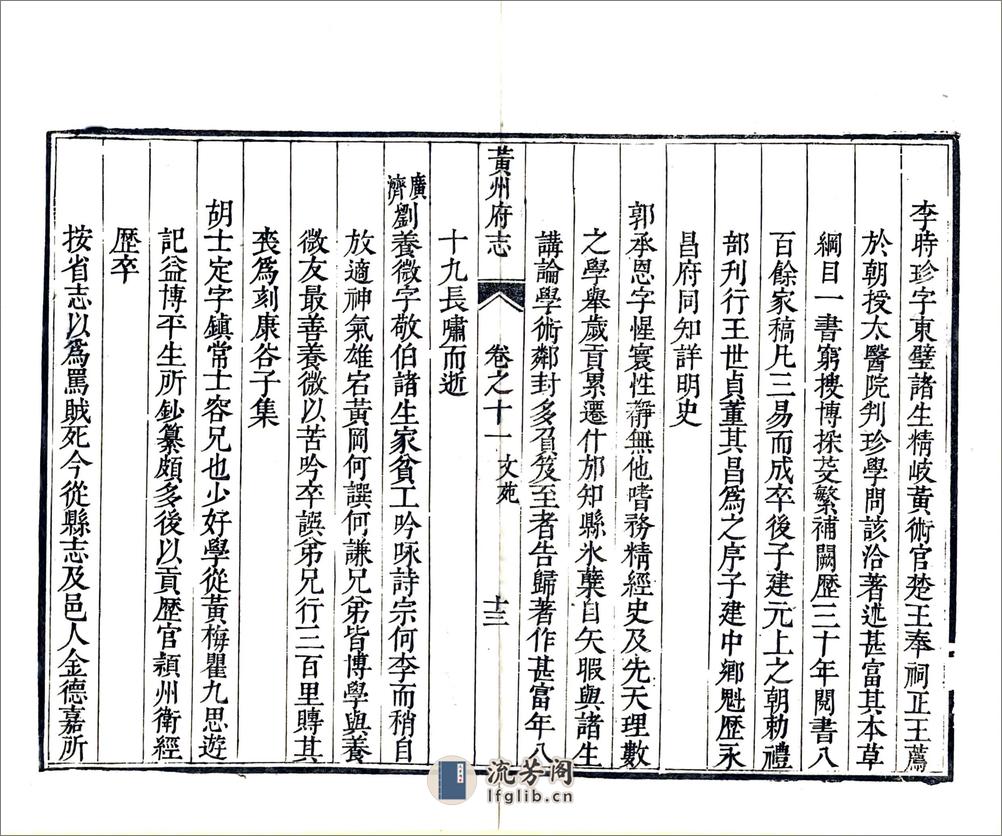 李時珍字東璧諸生精岐黃術官楚王奉祠正王薦
於朝授太醫院判珍學問該洽著述甚富其本草
綱目一書窮搜博採芟繁補闕歷三十年閱書八
百餘家稿凡三易而成卒後子建元上之朝勅禮
部刊行王世貞董其昌為之序子建中鄉魁歷永
昌府同知詳明史
郭承恩字惺寰性靜無他嗜務精經史及先天理數
之學舉歲貢累遷什邡知縣氷蘗自矢暇與諸生
講論學術鄰封多負笈至者告歸著作甚富年八
黃州府志 卷之十一 文苑 十三
十九長嘯而逝
廣濟劉養微字敬伯諸生家貧工吟咏詩宗何李而稍自
放適神氣雄宕黃岡何譔何謙兄弟皆博學與養
微友最善養微以苦吟卒譔弟兄行三百里賻其
喪為刻康谷子集
胡士定字鎮常士容兄也少好學從黃梅瞿九思遊
記益博平生所鈔纂頗多後以貢歷官潁州衛經
歷卒
按省志以為罵賊死今從縣志及邑人金德嘉所
流芳阁
lfglib.cn